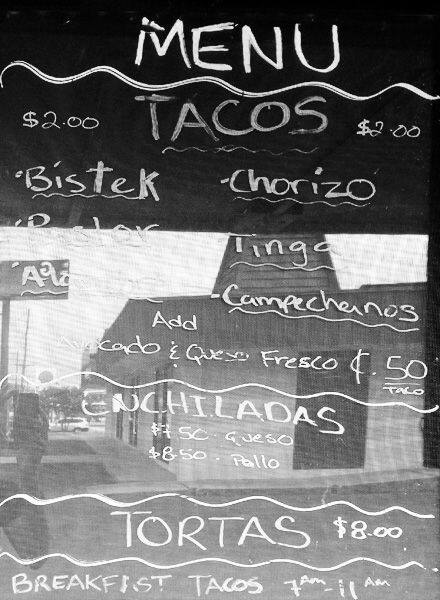 MENU
TACOS
$2.00 $2.00
·Bistek -Chorizo
Pastor Tinga
-Campechanos
Add
Avocado & Queso Fresco ¢.50
Taco
ENCHILADAS
$7.50 · Queso
$8.50 · Pollo
TORTAS $8.00
BREAKFAST TACOS 7AM-11AM